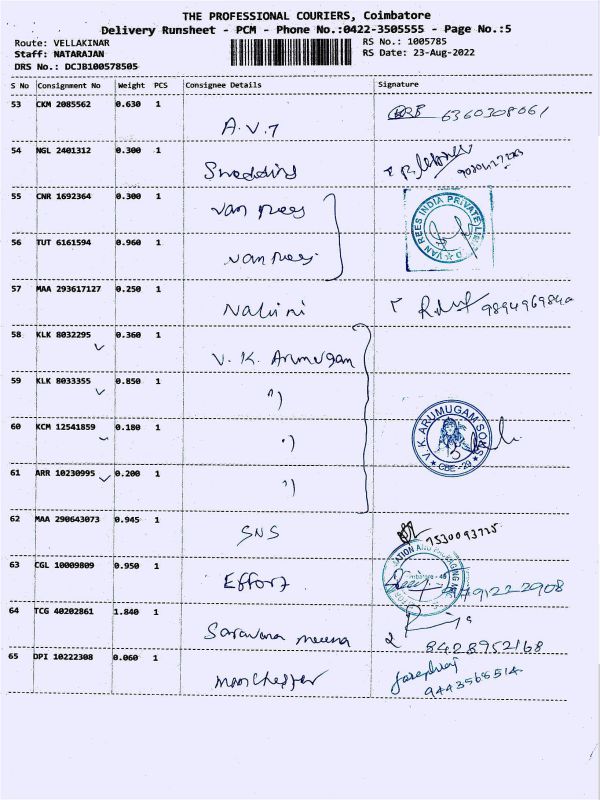 THE PROFESSIONAL COURIERS, Coimbatore
Delivery Runsheet - PCM - Phone No.:0422-3505555 - Page No.:5
Route: VELLAKINAR
RS No.: 1005785
Staff: NATARAJAN
RS Date: 23-Aug-2022
DRS No.: DCJB100578505
S No Consignment No Weight PCS Consignee Details Signature
53 CKM 2085562 0.630 1
A.V.T 6360308061
54 NGL 2401312 0.300 1
55 CNR 1692364 0.300 1
Van Rees
VAN REES INDIA PRIVATE LIMITED
56 TUT 6161594 0.960 1
Van Rees
57 MAA 293617127 0.250 1
Nalini 9894969840
58 KLK 8032295 0.360 1
V. K. Arumugam
59 KLK 8033355 0.850 1
")
60 KCM 12541859 0.180 1
")
V. K. ARUMUGAM SONS
CBE-29
61 ARR 10230995 0.200 1
")
62 MAA 290643073 0.945 1
SNS 9530093725
63 CGL 10009809 0.950 1
Effort
64 TCG 40202861 1.840 1
Saravana meena 8428952168
65 DPI 10222308 0.060 1
Manchester
9443565514